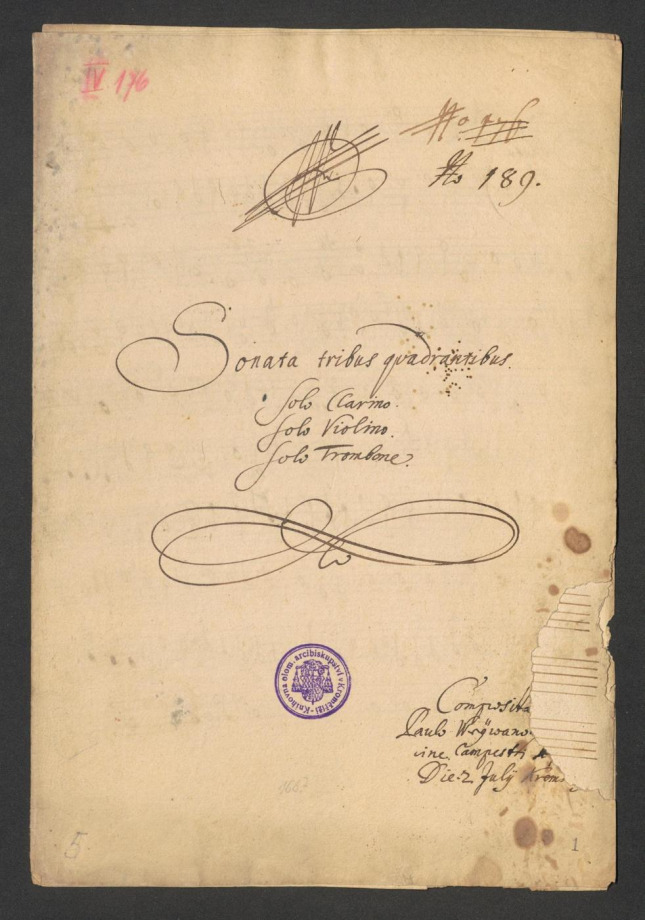 IV 176
No 176
No 189.
Sonata tribus quadrantibus.
Solo Clarino.
Solo Violino.
Solo Trombone.
Knihovna olom. arcibiskupství v Kroměříži
Composita
Paulo
Campestri
Die 2 Julij
5
1